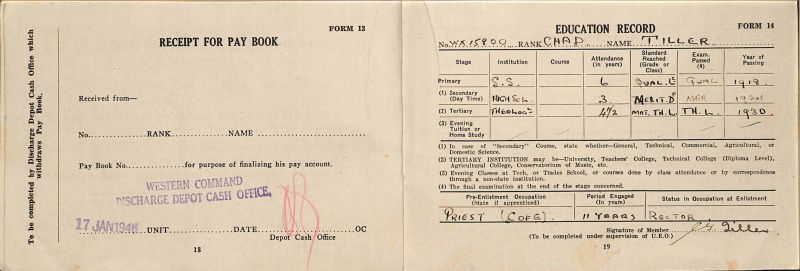 FORM 13
RECEIPT FOR PAY BOOK
To be completed by Discharge Depot Cash Office which withdraws Pay Book,
Received from—
No. RANK NAME
Pay Book No. for purpose of finalizing his pay account.
WESTERN COMMAND
DISCHARGE DEPOT CASH OFFICE,
17 JAN 1946 UNIT. DATE OC
Depot Cash Office
18
EDUCATION RECORD FORM 14
No. WX15900 RANK CHAP NAME TILLER
Stage Institution Course Attendance (in years) Standard Reached (Grade or Class) Exam. Passed (4) Year of Passing
Primary S.S. 6 QUAL. QUAL 1918
(1) Secondary (Day Time) HIGH SCH. 3 MERIT. 1921
(2) Tertiary THEOLOG 4½ MAT. TH.L. TH.L. 1930
(3) Evening Tuition or Home Study
(1) In case of "Secondary" Course, state whether—General, Technical, Commercial, Agricultural, or Domestic Science.
(2) TERTIARY INSTITUTION may be—University, Teachers' College, Technical College (Diploma Level), Agricultural College, Conservatorium of Music, etc.
(3) Evening Classes at Tech. or Trades School, or courses done by class attendance or by correspondence through a non-state institution.
(4) The final examination at the end of the stage concerned.
Pre-Enlistment Occupation (State if apprenticed) Period Engaged (in Years) Status in Occupation at Enlistment
PRIEST (C OF E) 11 YEARS RECTOR
Signature of Member Tiller
(To be completed under supervision of U.E.O.)
19